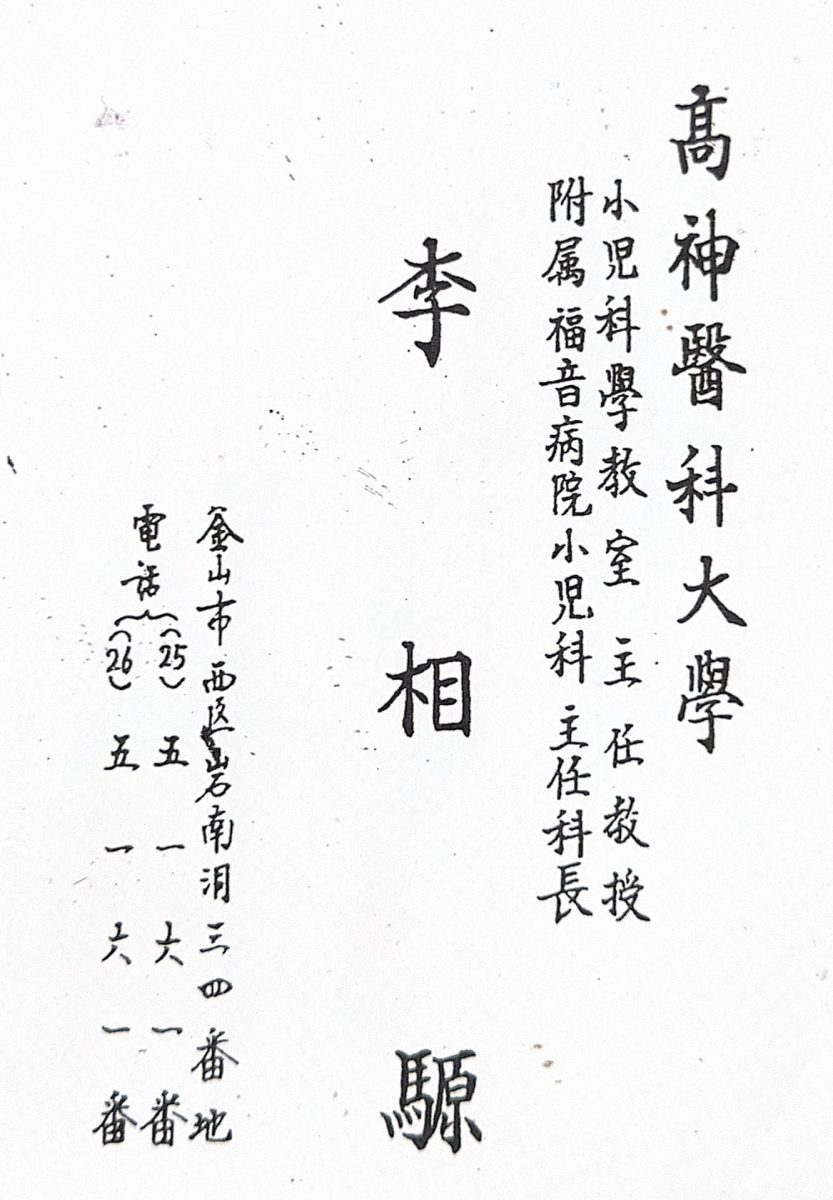 髙神醫科大學
小児科學教室主任教授
附属福音病院小児科主任科長
李相騵
釜山市西区岩南洞三四番地
電話
(25)五一六一番
(26)五一六一番